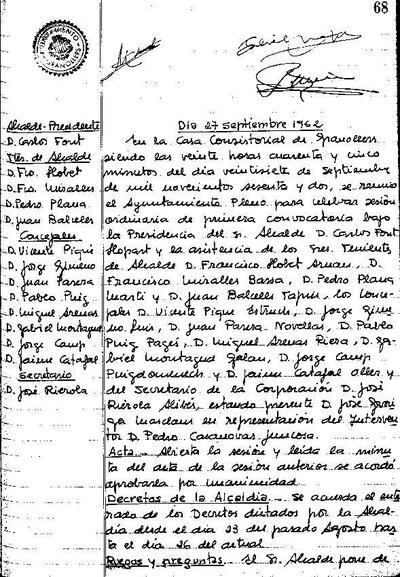 68
Alcalde-Presidente
D. Carlos Font
Ttes. de Alcalde
D. Fco. Llobet
D. Fco. Miralles
D. Pedro Plana
D. Juan Balcells
Concejales
D. Vicente Piqué
D. Jorge Gimeno
D. Juan Parera
D. Pablo Puig
D. Miguel Arenas
D. Gabriel Montagud
D. Jorge Camp
D. Jaime Catafal
Secretario
D. José Rierola
Dia 27 Septiembre 1962
En la Casa Consistorial de Granollers
siendo las veinte horas cuarenta y cinco
minutos del dia veintisiete de Septiembre
de mil novecientos sesenta y dos, se reunió
el Ayuntamiento Pleno para celebrar sesión
ordinaria de primera convocatoria bajo
la Presidencia del Sr. Alcalde D. Carlos Font
Llopart y la asistencia de los Sres. Tenientes
de Alcalde D. Francisco Llobet Arnan, D.
Francisco Miralles Bassa, D. Pedro Plana
Marti y D. Juan Balcells, los Conce-
jales D. Vicente Piqué Estruch, D. Jorge Gime
no Luis, D. Juan Parera Novellas, D. Pablo
Puig Pagés, D. Miguel Arenas Riera, D. Ga-
briel Montagud Galan, D. Jorge Camp
Puigdomenech y D. Jaime Catafal Oller y
del Secretario de la Corporación D. José
Rierola, estando presente D. José
en representación del Interven
tor D. Pedro Casanovas Juncosa.
Acta - Abierta la sesión y leida la minu
ta del acta de la sesión anterior se acordó
aprobarla por unanimidad
Decretos de la Alcaldia - Se acuerda el ente
rado de los Decretos dictados por la Alcal-
dia desde el dia 23 del pasado Agosto has
ta el dia 26 del actual
Ruegos y preguntas - El Sr. Alcalde pone de